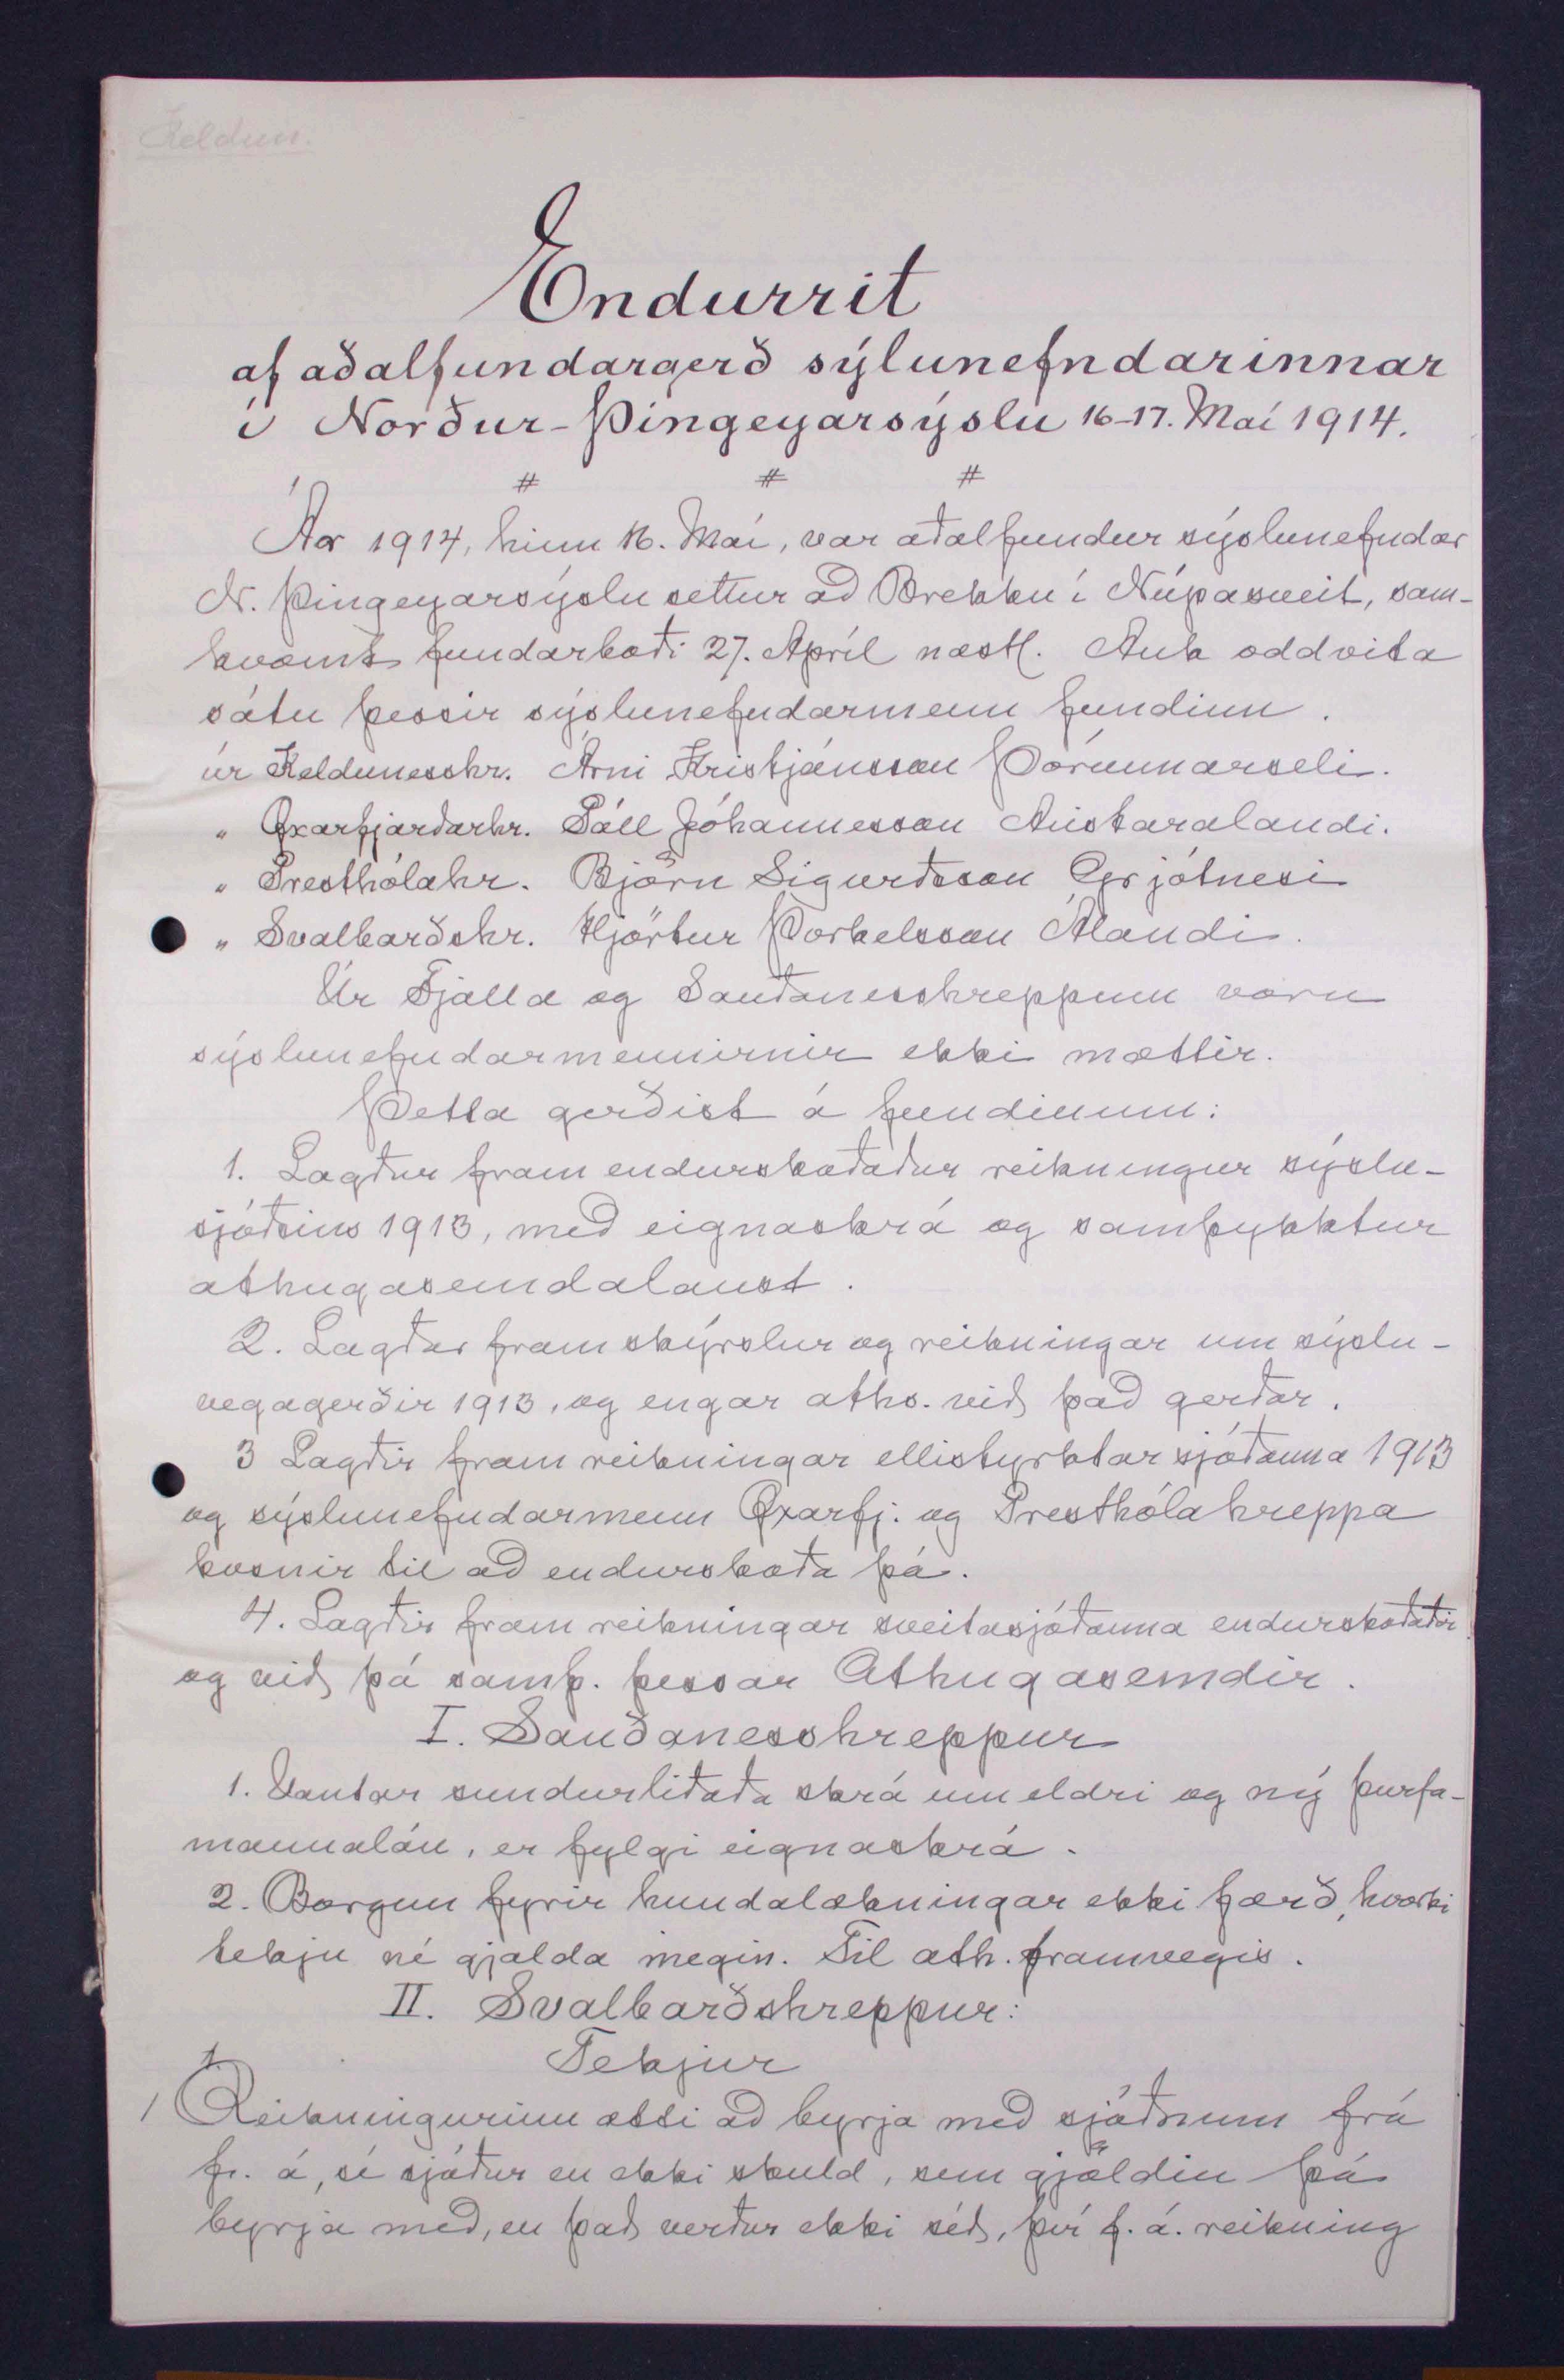 Keldun.
Endurrit
af aðalfundargerð sýlunefndarinnar
í Norður-Þingeyarsýslu 16-17. Maí 1914.
# # #
Ár 1914, hinn 16. Maí, var aðalfundur sýslunefndar
N. Þingeyarsýslu settur að Brekku í Núpasveit, sam-
kvæmt fundarboði 27. Apríl næstl. Auk oddvita
sátu þessir sýslunefndarmenn fundinn.
úr Keldunesshr. Árni Kristjánsson Þórunnarseli.
" Öxarfjarðarhr. Páll Jóhannesson Austaralandi.
" Presthólahr. Björn Sigurðsson Grjótnesi
" Svalbarðshr. Hjörtur Þorkelsson Álandi.
Úr Fjalla og Sauðanesshreppum voru
sýslunefndarmennirnir ekki mættir.
Þetta gerðist á fundinum:
1. Lagður fram endurskoðaður reikningur sýslu-
sjóðsins 1913, með eignaskrá og samþykktur
athugasemdalaust.
2. Lagðar fram skýrslur og reikningar um sýslu-
vegagerðir 1913, og engar aths. við það gerðar.
3 Lagðir fram reikningar ellistyrktarsjóðanna 1913
og sýslunefndarmenn Öxarfj. og Presthólahreppa
kosnir til að endurskoða þá.
4. Lagðir fram reikningar sveitasjóðanna endurskoðaðir
og við þá samþ. þessar Athugasemdir.
I. Sauðanesshreppur
1. Vantar sundurliðaða skrá um eldri og ný þurfa-
mannalán, er fylgi eignaskrá.
2. Borgun fyrir hundalækningar ekki færð, hvorki
tekju né gjalda megin. Til ath. framvegis.
II. Svalbarðshreppur:
Tekjur
1 Reikningurinn ætti að byrja með sjóðnum frá
fr. á, sé sjóður en ekki skuld, sem gjöldin þá
byrja með, en það verður ekki séð, því f. á. reikning